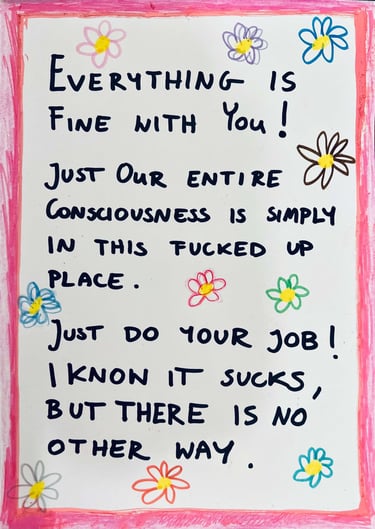 EVERYTHING IS
FINE WITH YOU!
JUST OUR ENTIRE
CONSCIOUSNESS IS SIMPLY
IN THIS FUCKED UP
PLACE.
JUST DO YOUR JOB!
I KNOW IT SUCKS,
BUT THERE IS NO
OTHER WAY.